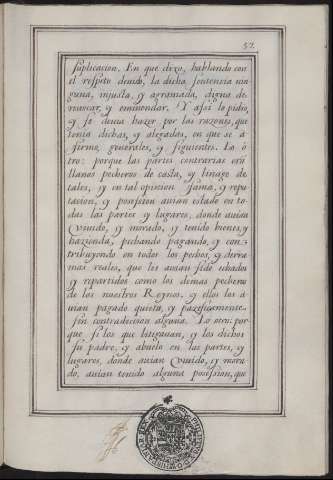 57.
suplicacion, En que dixo, hablando con
el respeto deuido, la dicha sentencia nin-
guna, injusta, y agrauiada, digna de
reuocar, y emmendar. Y assi lo pidio,
y se deuia hazer por las razones, que
tenia dichas, y alegadas, en que se a
firmo, generales, y siguientes. Lo ô-
tro: porque las partes contrarias erã
llanos pecheros de casta, y linage de
tales, y en tal opinion, fama, y repu-
tacion, y posession auian estado en to-
das las partes y lugares, donde auian
Viuido, y morado, y tenido bienes, y
hazienda, pechando pagando, y con-
tribuyendo en todos los pechos, y derra-
mas reales, que les auian sido echados
y repartidos como los demas pecheros
de los nuestros Reynos. y ellos los a-
uian pagado quieta, y pazificamente.
sin contradicion alguna. Lo otro: por-
que si los que litiguian, y los dichos
su padre, y abuelo en las partes, y
lugares, donde auian Viuido, y mora-
do, auian tenido alguna posession, que